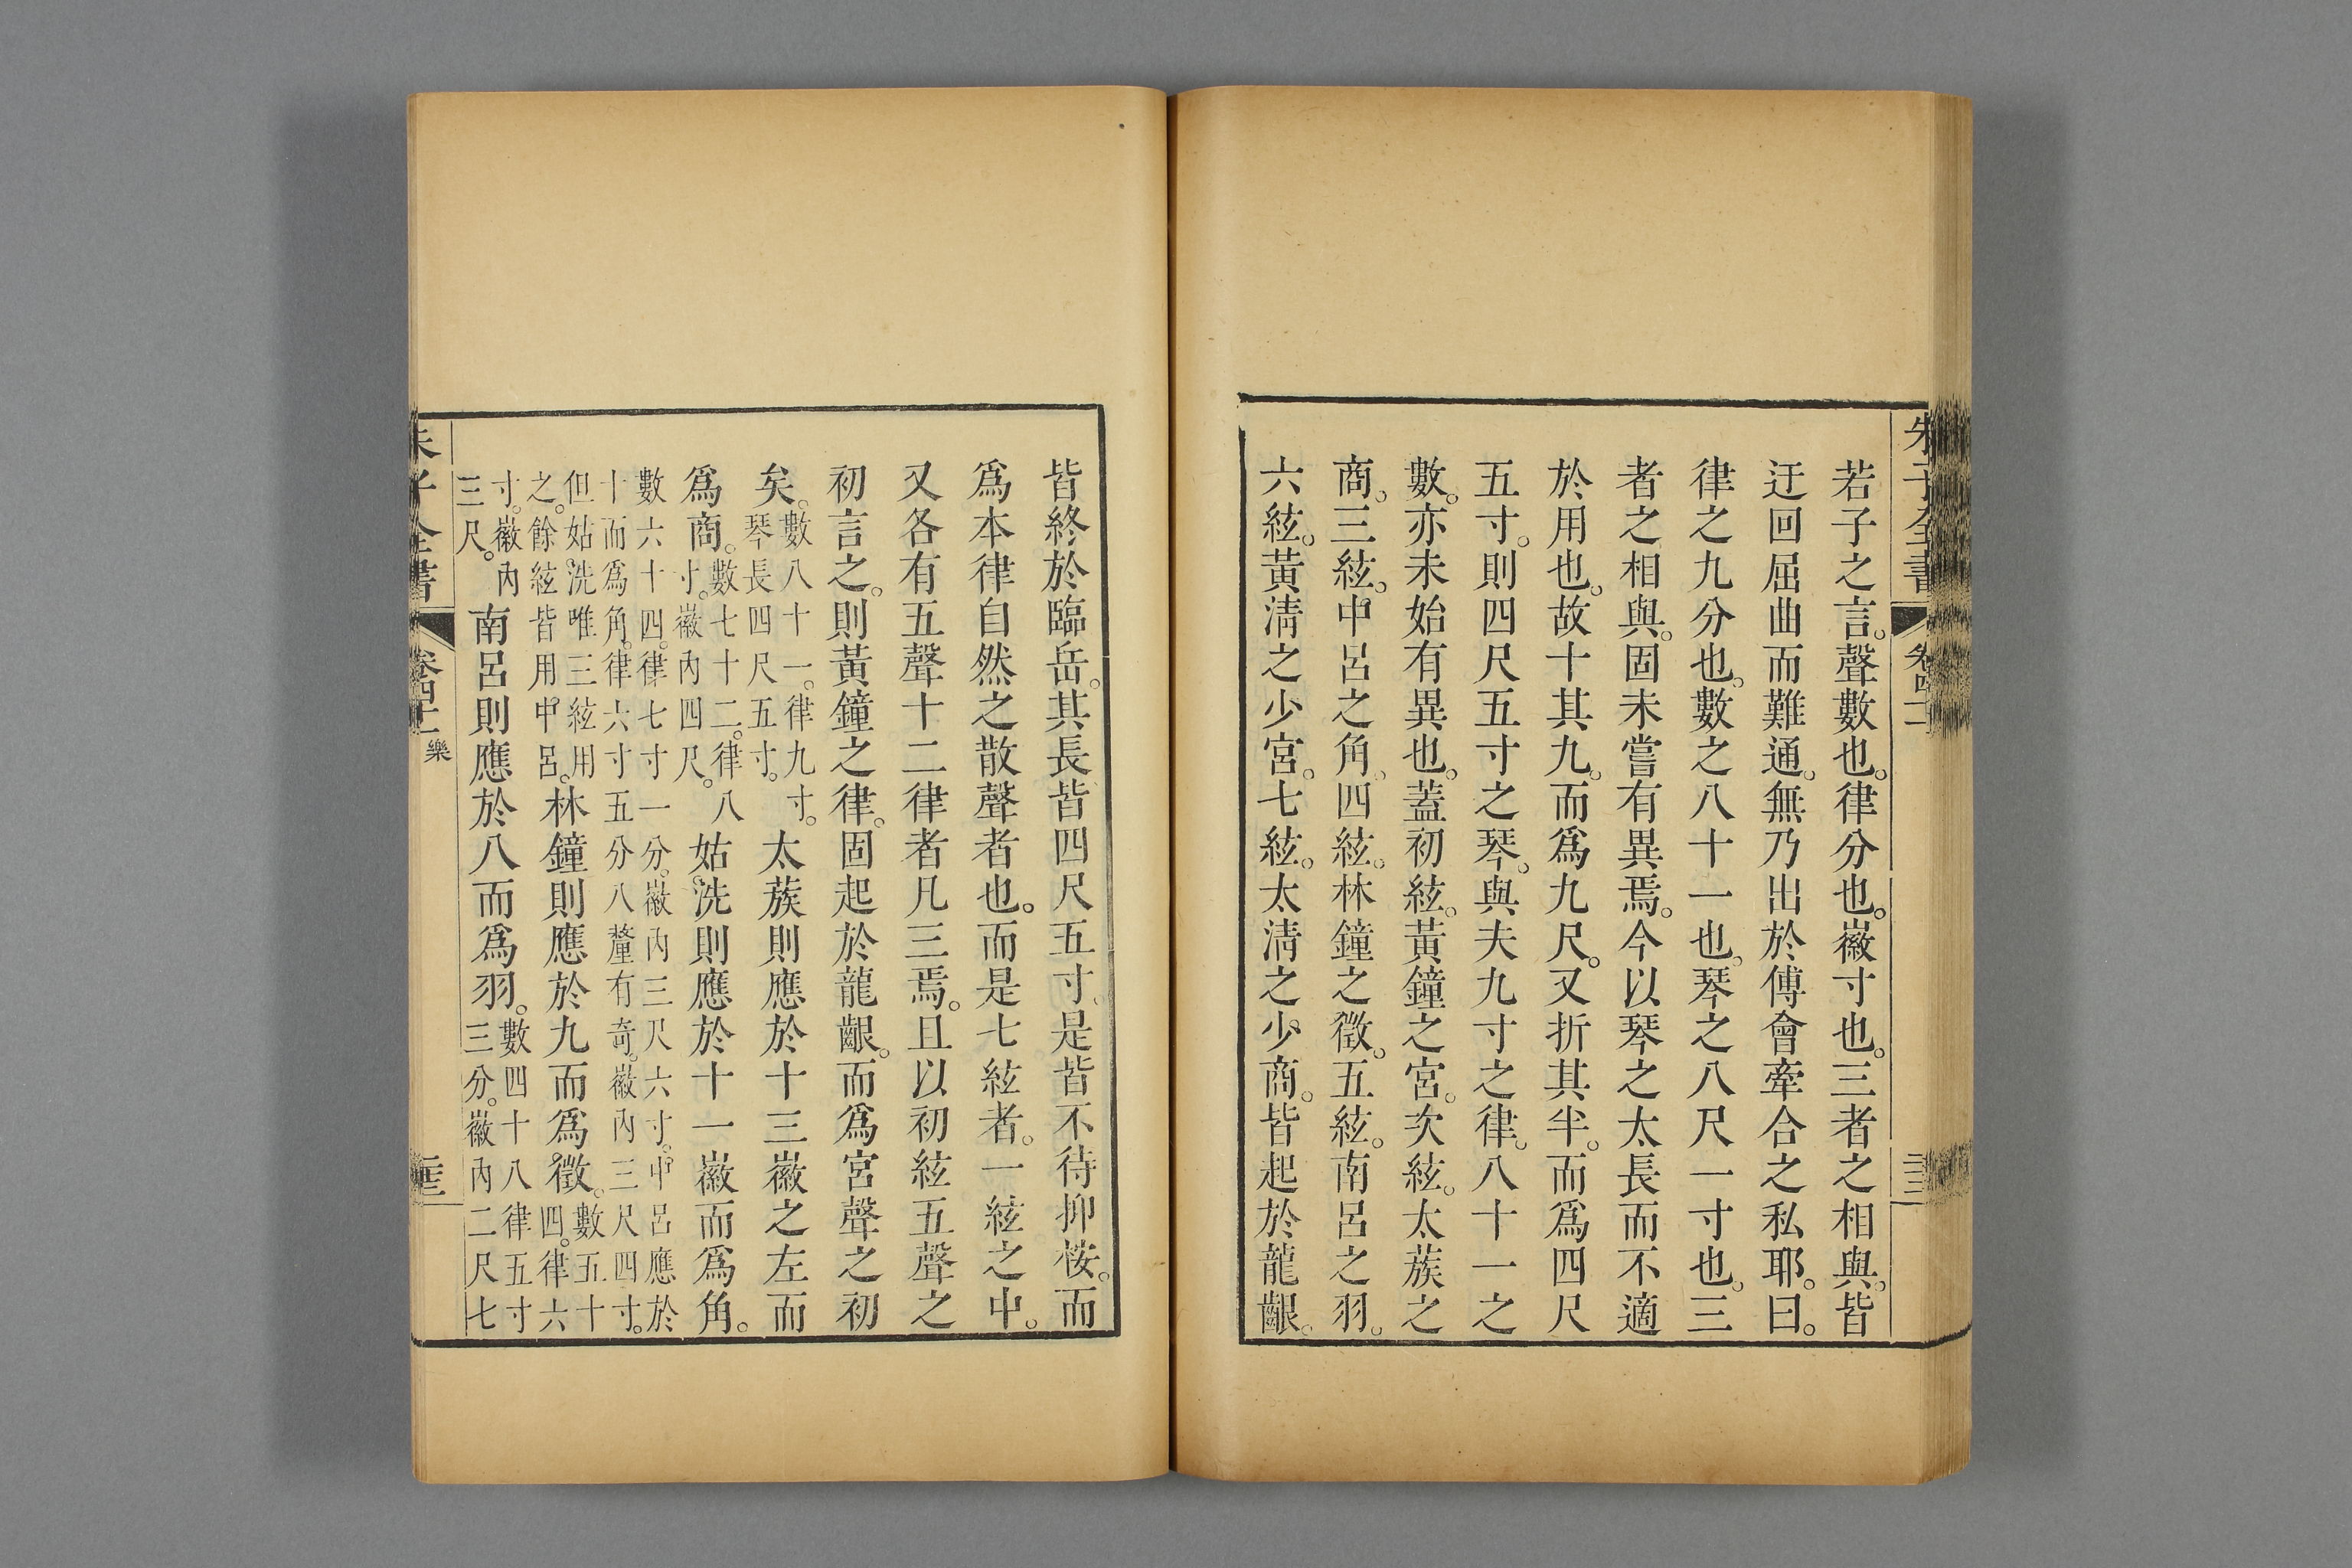 若子之言。聲數也。律分也。徽寸也。三者之相與。皆
迂回屈曲而難通。無乃出於傅會牽合之私耶。曰。
律之九分也。數之八十一也。琴之八尺一寸也。三
者之相與。固未嘗有異焉。今以琴之太長而不適
於用也。故十其九。而爲九尺。又折其半。而爲四尺
五寸。則四尺五寸之琴。與夫九寸之律。八十一之
數。亦未始有異也。蓋初絃。黃鐘之宮。次絃。太蔟之
商。三絃。中呂之角。四絃。林鐘之徵。五絃。南呂之羽。
六絃。黃淸之少宮。七絃。太淸之少商。皆起於龍齦。
皆終於臨岳。其長皆四尺五寸。是皆不待抑按。而
爲本律自然之散聲者也。而是七絃者。一絃之中。
又各有五聲十二律者凡三焉。且以初絃五聲之
初言之。則黃鐘之律。固起於龍齦。而爲宮聲之初
矣。數八十一。律九寸。琴長四尺五寸。太蔟則應於十三徽之左而
爲商。數七十二。律八寸。徽內四尺。姑洗則應於十一徽而爲角。
數六十四。律七寸一分。徽內三尺六寸。中呂應於
十而爲角。律六寸五分八釐有奇。徽內三尺四寸。
但姑洗唯三絃用之。餘絃皆用中呂。林鐘則應於九而爲徵。數五十四。律六
寸。徽內三尺。南呂則應於八而爲羽。數四十八律五寸三分。徽內二尺七
朱子全書
卷四十一
樂
朱子全書